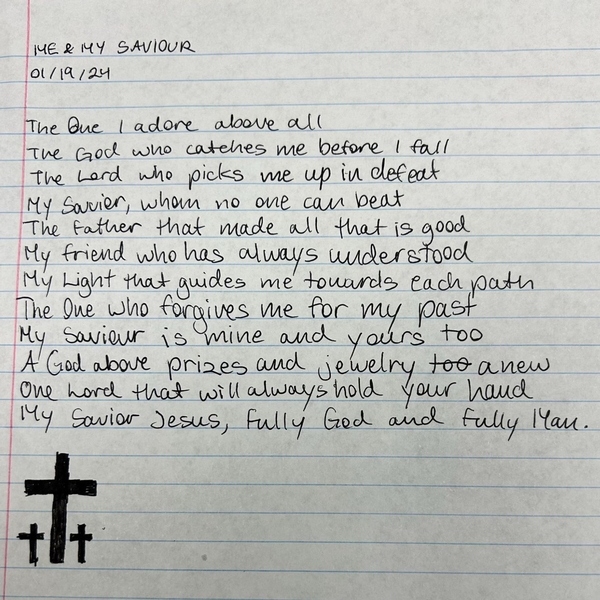 ME & MY SAVIOUR
01/19/24
The One I adore above all
The God who catches me before I fall
The Lord who picks me up in defeat
My Savier, whom no one can beat
The Father that made all that is good
My friend who has always understood
My Light that guides me towards each path
The One who forgives me for my past
My Saviour is mine and yours too
A God above prizes and jewelry too anew
One Lord that will always hold your hand
My Savior Jesus, Fully God and Fully Man.